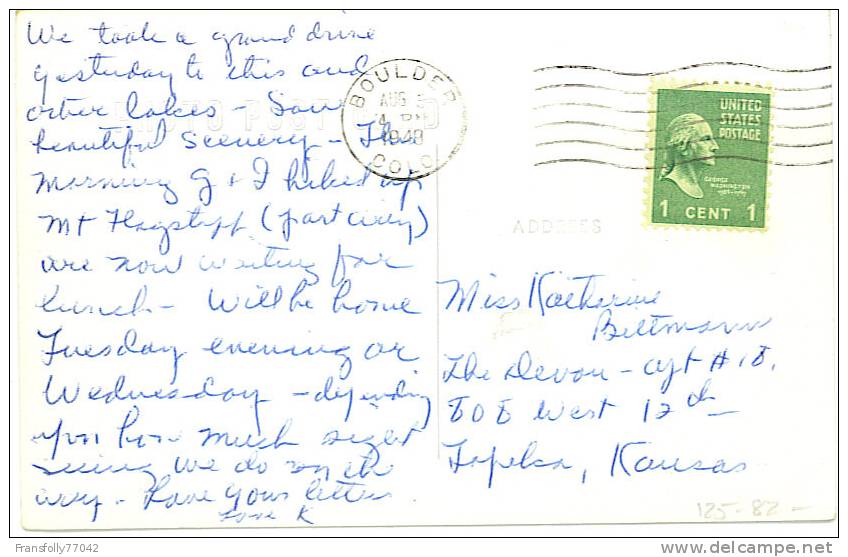 We took a grand drive
yesterday to this and
other lakes - Some
beautiful scenery - This
morning G & I hiked up
Mt Flagstaff (part way)
are now waiting for
lunch - Will be home
Tuesday evening or
Wednesday - depending
upon how much sight
seeing we do on the
way - Have your letter
Love K
BOULDER
AUG
4 PM
COLO
UNITED
STATES
POSTAGE
GEORGE
WASHINGTON
1 CENT 1
ADDRESS
Miss Katherine
Bettmann
The Devon - apt # 18,
808 West 12th
Topeka, Kansas
125-82-
Fransfolly77042
www.delcampe.net